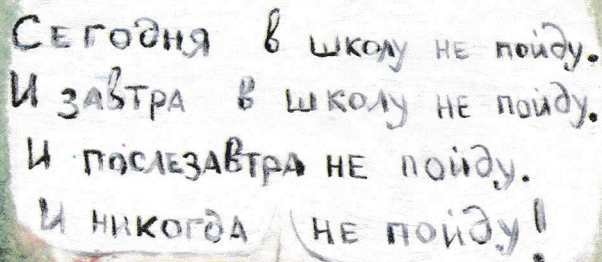 Сегодня в школу не пойду.
И завтра в школу не пойду.
И послезавтра не пойду.
И никогда не пойду!